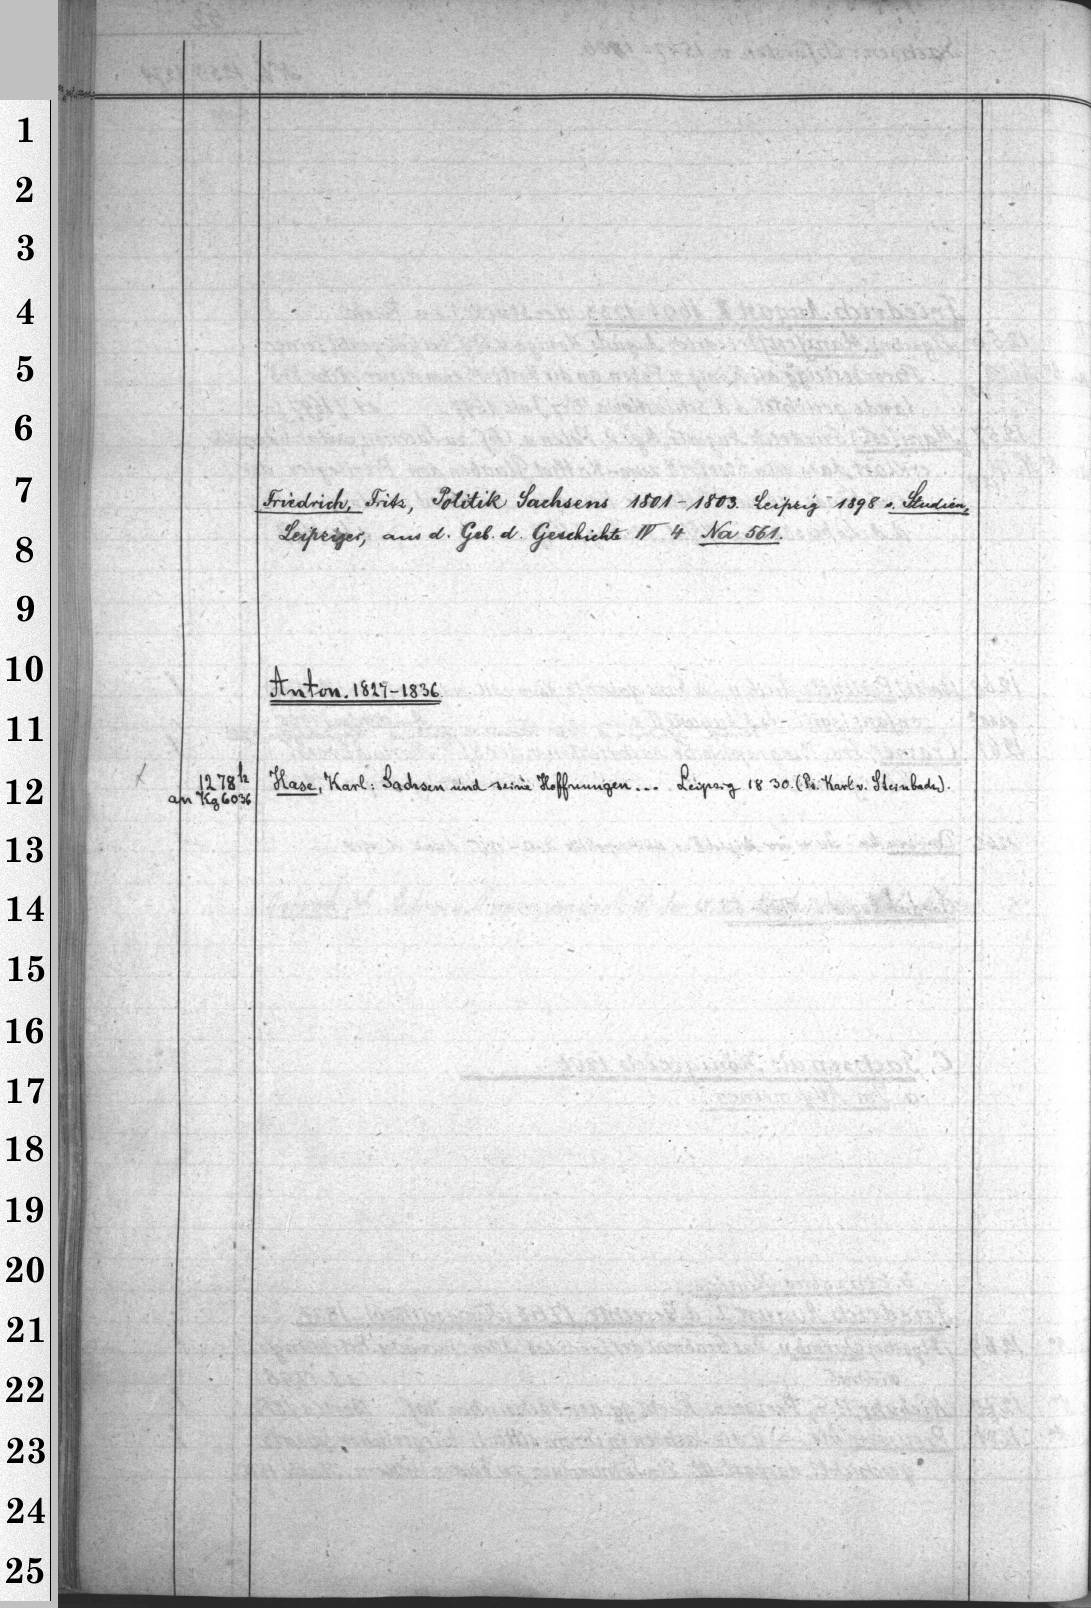 1
2
3
4
5
6
7
Friedrich, Fritz, Politik Sachsens 1801-1803. Leipzig 1898 s. Studien,
8
Leipziger, aus d. Geb. d. Geschichte IV 4 Na 561.
9
10
Anton. 1827-1836
11
12
1278h Hase, Karl: Sachsen und seine Hoffnungen... Leipzig 1830. (Ps. Karl v. Steinbach).
an Kg 6036
13
14
15
16
17
18
19
20
21
22
23
24
25